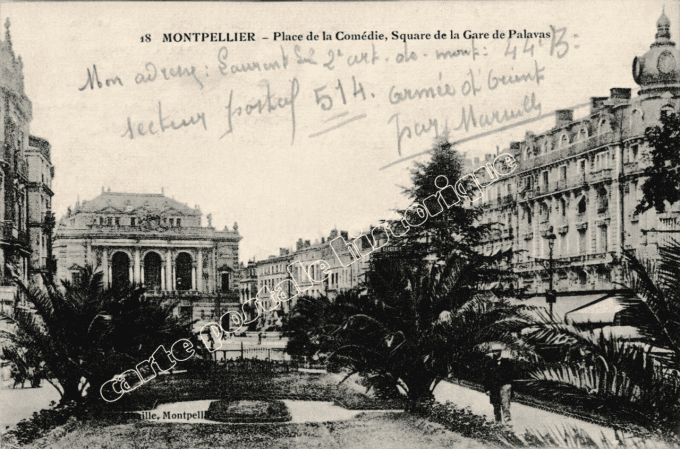 18 MONTPELLIER – Place de la Comédie, Square de la Gare de Palavas
Mon adresse: Laurent 2e art. de mont: 44e B:
secteur postal 514. Armée d'Orient
par Marseille
carte postale historique.com
ille, Montpell